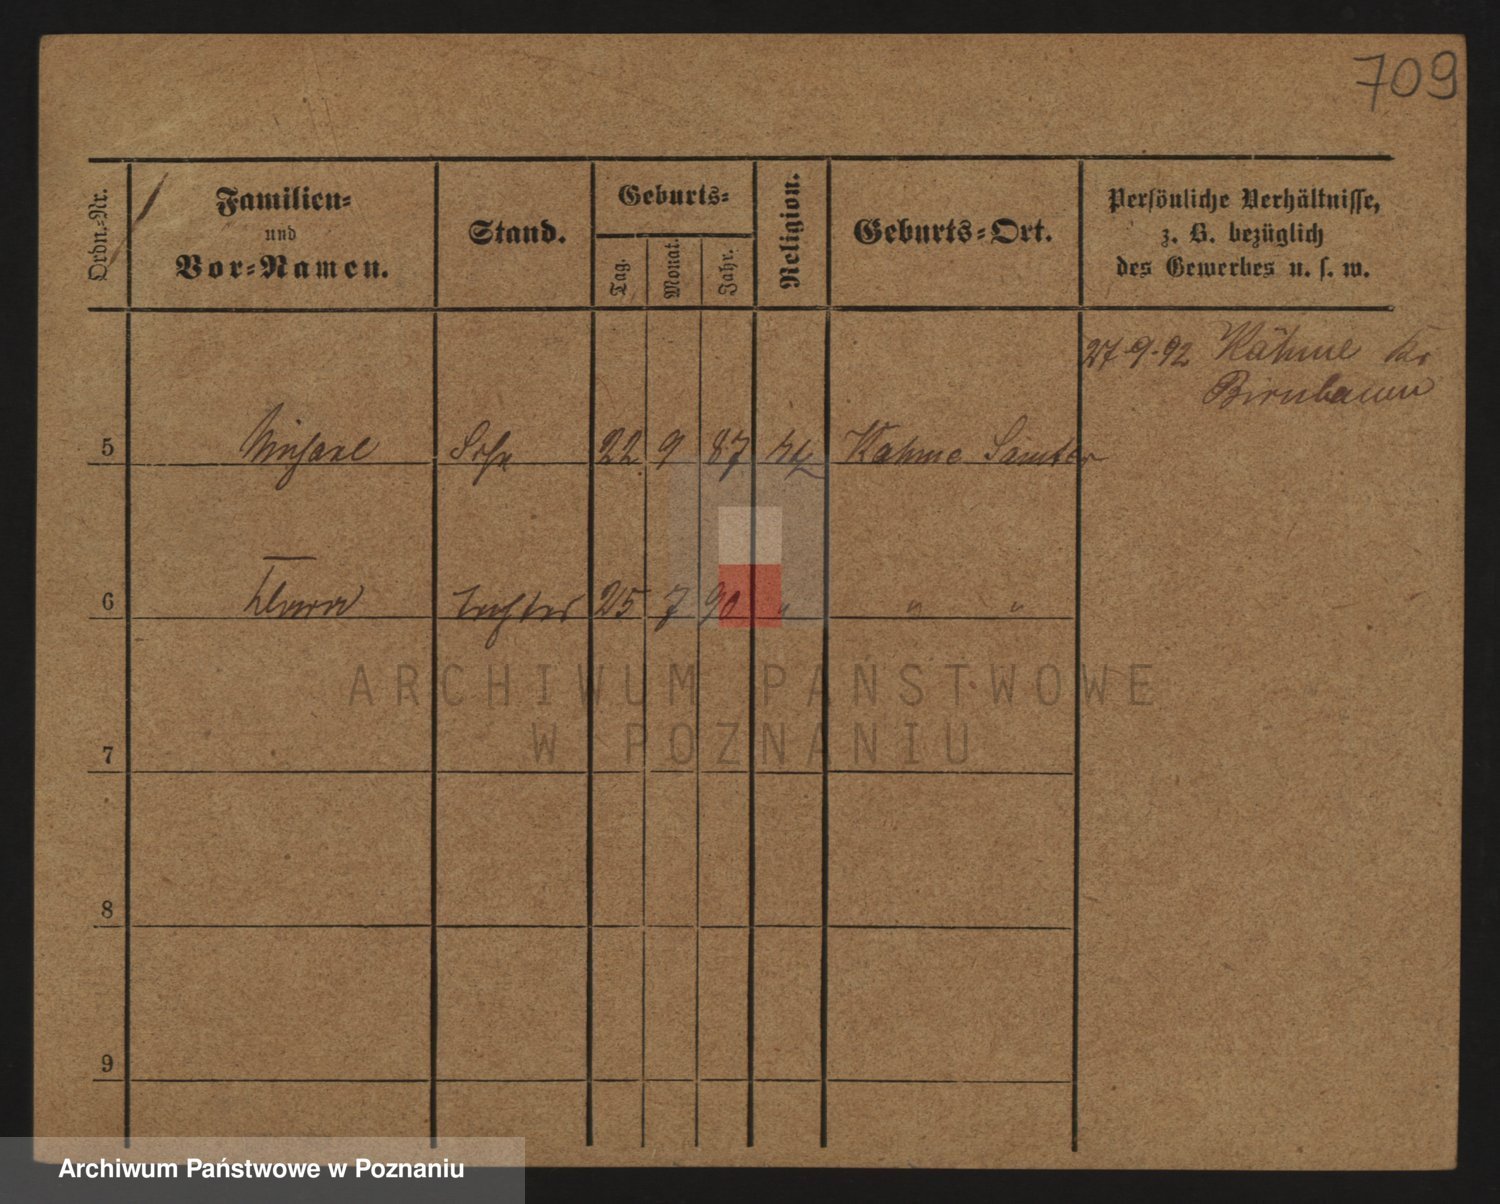 709
Ordn.-Nr.
Familien-
und
Vor-Namen.
Stand.
Geburts-
Tag.
Monat.
Jahr.
Religion.
Geburts-Ort.
Persönliche Verhältnisse,
z. B. bezüglich
des Gewerbes u. s. w.
27-9-92 Kähme Kr
Birnbaum
5 Michael Sohn 22 9 87 Kähme Samter
6 Tochter 25 7 90 " " "
ARCHIWUM PAŃSTWOWE
W POZNANIU
7
8
9
Archiwum Państwowe w Poznaniu